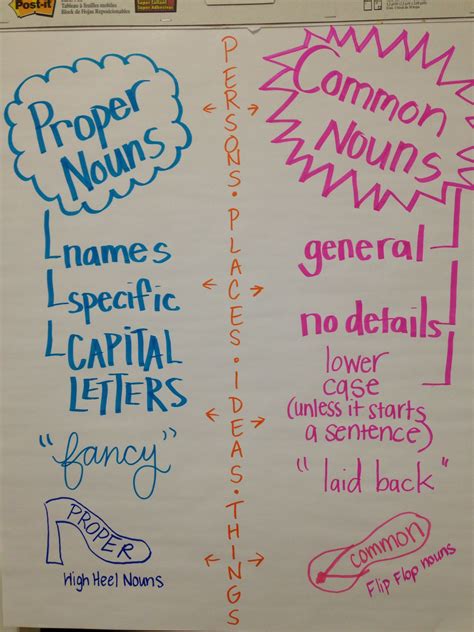 Post-it
Super Sticky
Proper
Nouns
names
specific
CAPITAL
LETTERS
"fancy"
PROPER
High Heel Nouns
PERSONS·PLACES·IDEAS·THINGS
Common
Nouns
general
no details
lower
case
(unless it starts
a sentence)
"laid back"
Common
Flip Flop nouns